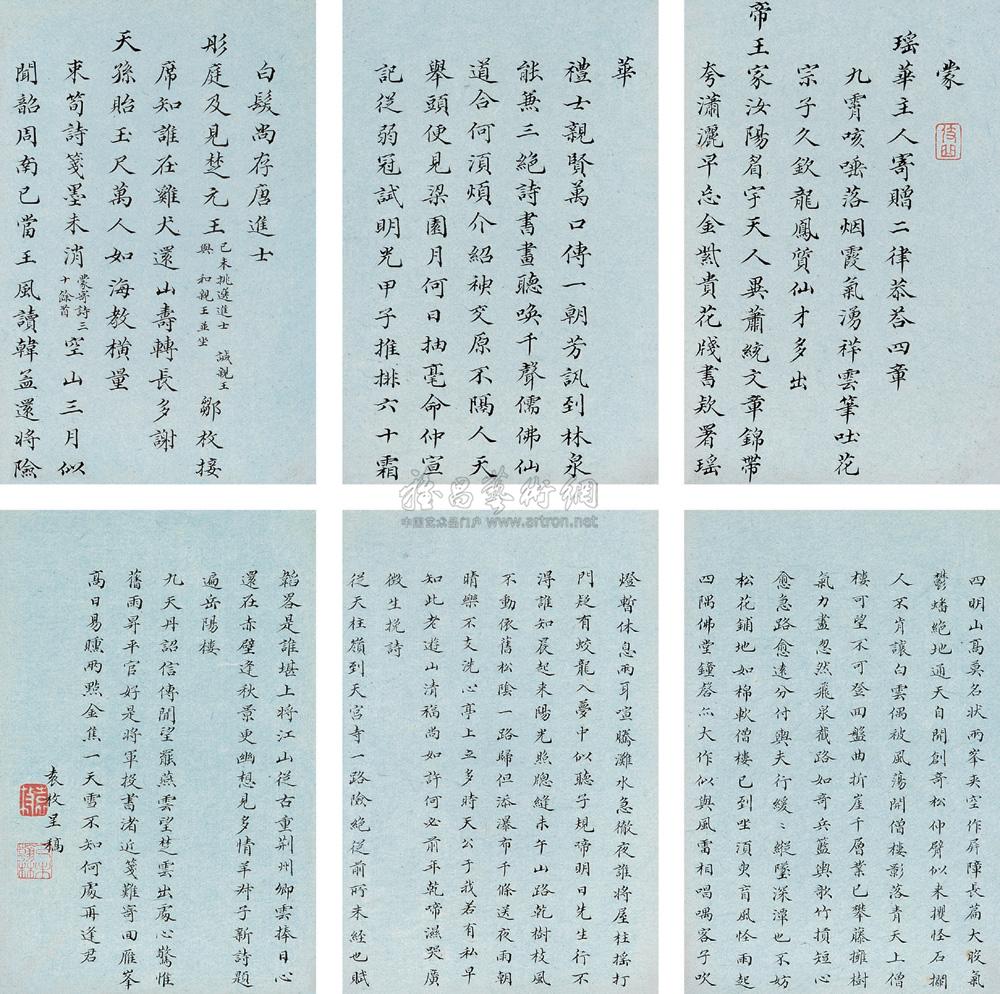 蒙
瑶華主人寄贈二律恭荅四章
九霄咳唾落烟霞氣湧祥雲筆吐花
宗子久欽龍鳳質仙才多出
帝王家汝陽眉宇天人異蕭統文章錦帶
夸瀟灑早忘金紫貴花牋書欵署瑶
華
禮士親賢萬口傳一朝芳訊到林泉
能兼三絶詩書畫聽唤千聲儒佛仙
道合何須煩介紹神交原不隔人天
舉頭便見梁園月何日抽毫命仲宣
記從弱冠試明光甲子推排六十霜
白髮尚存唐進士
彤庭及見楚元王己未挑選進士 誠親王與 和親王並坐鄒枚接
席知誰在雞犬還山壽轉長多謝
天孫貽玉尺萬人如海教横量
束筍詩箋墨未消蒙寄詩三十餘首空山三月似
聞韶周南已當王風讀韓孟還將險
四明山高莫名狀兩峯夾空作屏障長篇大
鬱蟠絶地通天自開創奇松伸臂似来攫怪石
人不肯讓白雲偶被風蕩開僧樓影落青天上僧
樓可望不可登四盤曲折崖千層業已攀藤擁樹
氣力盡忽然飛泉截路如奇兵藍輿歌竹損短心
愈急路愈遠分付輿夫行緩〻縱墜深潭也不妨
松花鋪地如棉軟僧樓已到坐須臾盲風怪雨起
四隅佛堂鐘磬亦大作似與風雷相唱喁客子吹
燈暫休息兩耳喧騰灘水急徹夜誰將屋柱摇打
門疑有蛟龍入夢中似聽子規啼明日先生行不
得誰知晨起来陽光照牕縫未午山路乾樹枝風
不動依舊松陰一路歸但添瀑布千條送夜雨朝
晴樂不支洗心亭上立多時天公于我若有私早
知此老遊山清福尚如許何必前年乾啼濕哭廣
徴生挽詩
從天柱嶺到天宫寺一路險絶從前所未經也賦
韜畧是誰堪上將江山從古重荆州卿雲捧日心
還在赤壁逢秋景更幽想見多情羊叔子新詩題
遍岳陽樓
九天丹詔信傳聞望罷燕雲望楚雲出處心驚惟
舊雨昇平官好是將軍投書渚近箋難寄回雁峯
高日易曛兩點金焦一天雪不知何處再逢君
袁枚呈稿
雅昌藝術網
中国艺术品门户 www.artron.net